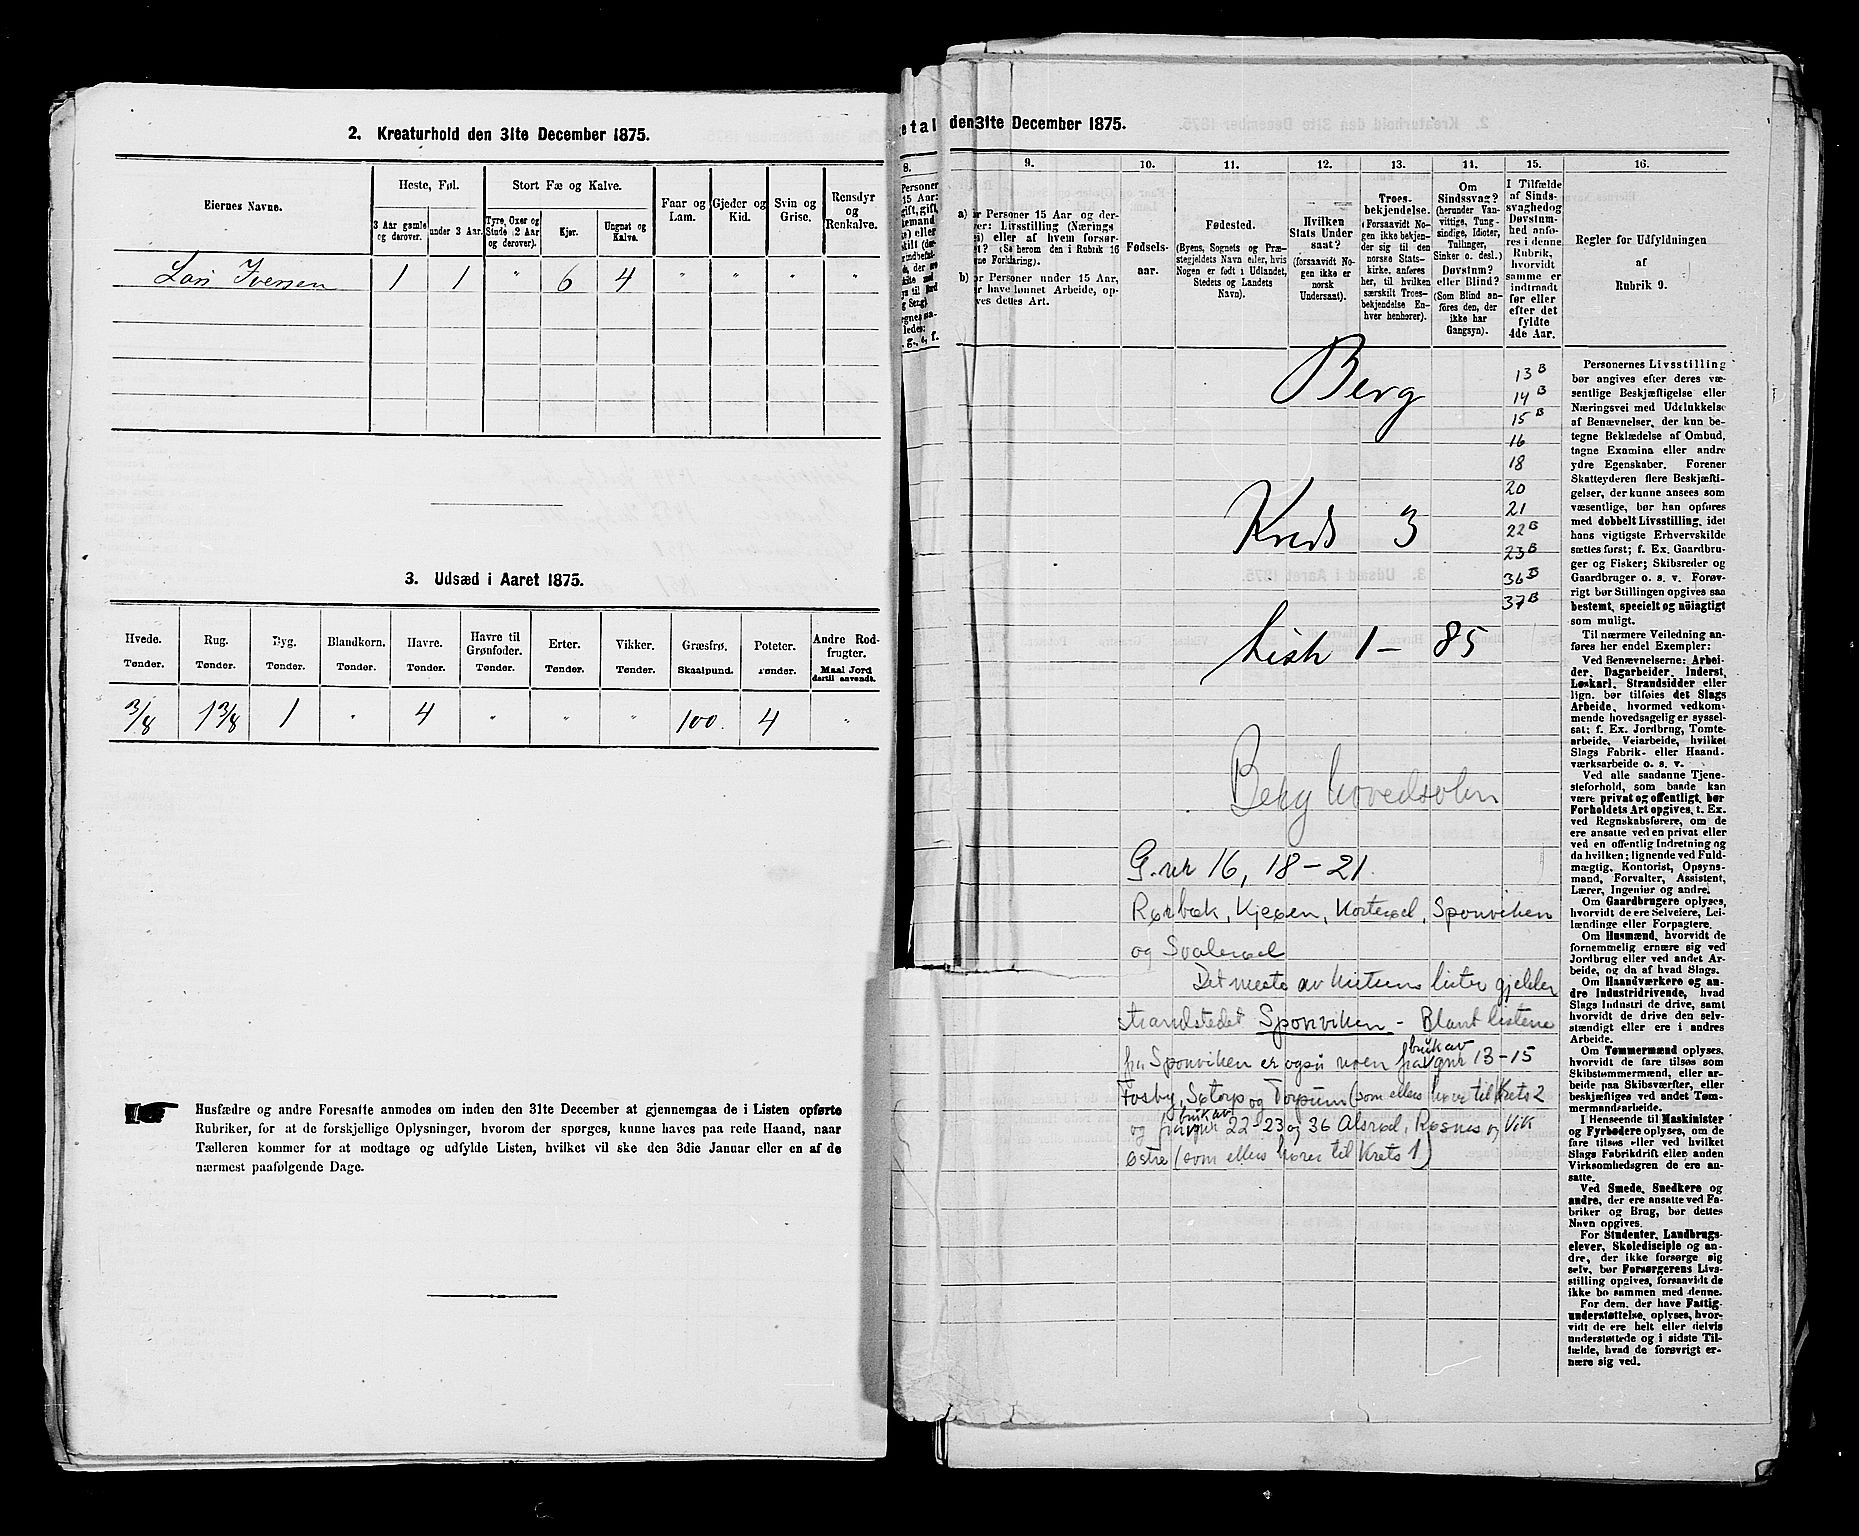 2. Kreaturhold den 31te December 1875.
Eiernes Navne.
Heste, Føl.
Stort Fæ og Kalve.
Faar og Lam.
Gjeder og Kid.
Svin og Grise.
Rensdyr og Renkalve.
3 Aar gamle og derover.
under 3 Aar.
Tyre, Oxer og Stude (2 Aar og derover).
Kjør.
Ungnøt og Kalve.
Lars Iversen 1 1 " 6 4 " " " "
3. Udsæd i Aaret 1875.
Hvede. Rug. Byg. Blandkorn. Havre. Havre til Grønfoder. Erter. Vikker. Græsfrø. Poteter. Andre Rodfrugter.
Tønder. Tønder. Tønder. Tønder. Tønder. Tønder. Tønder. Tønder. Skaalpund. Tønder. Maal Jord dertil anvendt.
3/8 1 3/8 1 " 4 " " " 100. 4 "
Husfædre og andre Foresatte anmodes om inden den 31te December at gjennemgaa de i Listen opførte
Rubriker, for at de forskjellige Oplysninger, hvorom der spørges, kunne haves paa rede Haand, naar
Tælleren kommer for at modtage og udfylde Listen, hvilket vil ske den 3die Januar eller en af de
nærmest paafølgende Dage.
etal den 31te December 1875.
8. 9. 10. 11. 12. 13. 14. 15. 16.
Personer
15 Aar:
gift, gift,
a) or Personer 15 Aar og der-
er: Livsstilling (Nærings
i) eller af hvem forsør-
t? (Se herom den i Rubrik 16
ne Forklaring).
b) or Personer under 15 Aar,
er have lønnet Arbeide, op-
ves dettes Art.
Fødsels-
aar.
Fødested.
(Byens, Sognets og Præ-
stegjeldets Navn eller, hvis
Nogen er født i Udlandet,
Stedets og Landets
Navn).
Hvilken
Stats Under
saat?
(forsaavidt No-
gen ikke er
norsk
Undersaat).
Troes-
bekjendelse.
(Forsaavidt No-
gen ikke bekjen-
der sig til den
norske Stats-
kirke, anføres
her, til hvilken
særskilt Troes-
bekjendelse En-
hver henhører).
Om
Sindssvag?
(herunder Van-
vittige, Tung-
sindige, Idioter,
Tullinger,
Sinker o. desl.)
Døvstum?
eller Blind?
(Som Blind an-
føres den, der
ikke har
Gangsyn).
I Tilfælde
af Sinds-
svaghed og
Døvstum-
hed anfø-
res i denne
Rubrik,
hvorvidt
samme er
indtraadt
før eller
efter det
fyldte
4de Aar.
Regler for Udfyldningen
af
Rubrik 9.
Berg
Kreds 3
Liste 1 – 85
13 B
14 B
15 B
16
18
20
21
22 B
23 B
36 B
37 B
Berg hovedsokn
G.nr 16, 18 – 21.
Rørbæk, Kjeøen, Korterød, Sponviken
og Svalerød
Det meste av kretsens lister gjelder
strandstedet Sponviken – Blant listene
fra Sponviken er også noen fra bruk av gnr 13 – 15
Fosby, Søtorp og Torpum (som ellers hører til Krets 2
og fra bruk av gnr 22 – 23 og 36 Alsrød, Røsnes og Vik
østre (som ellers hører til Krets 1)
Personernes Livsstilling
bør angives efter deres væ-
sentlige Beskjæftigelse eller
Næringsvei med Udelukkelse
af Benævnelser, der kun be-
tegne Beklædelse af Ombud,
tagne Examina eller andre
ydre Egenskaber. Forener
Skatteyderen flere Beskjæfti-
gelser, der kunne ansees som
væsentlige, bør han opføres
med dobbelt Livsstilling, idet
hans vigtigste Erhvervskilde
sættes først; f. Ex. Gaardbru-
ger og Fisker; Skibsreder og
Gaardbruger o. s. v. Forøv-
rigt bør Stillingen opgives saa
bestemt, specielt og nöiagtigt
som muligt.
Til nærmere Veiledning an-
føres her endel Exempler:
Ved Benævnelserne: Arbei-
der, Dagarbeider, Inderst,
Løskarl, Strandsidder eller
lign. bør tilføies det Slags
Arbeide, hvormed vedkom-
mende hovedsagelig er syssel-
sat; f. Ex. Jordbrug, Tomte-
arbeide, Veiarbeide, hvilket
Slags Fabrik- eller Haand-
værksarbeide o. s. v.
Ved alle saadanne Tjene-
steforhold, som baade kan
være privat og offentligt, bør
Forholdets Art opgives, t. Ex.
ved Regnskabsførere, om de
ere ansatte ved en privat eller
ved en offentlig Indretning og
da hvilken; lignende ved Fuld-
mægtig, Kontorist, Opsyns-
mand, Forvalter, Assistent,
Lærer, Ingeniør og andre.
Om Gaardbrugere oplyses,
hvorvidt de ere Selveiere, Lei-
lændinge eller Forpagtere.
Om Husmænd, hvorvidt de
fornemmelig ernære sig ved
Jordbrug eller ved andet Ar-
beide, og da af hvad Slags.
Om Haandværkere og an-
dre Industridrivende, hvad
Slags Industri de drive, samt
hvorvidt de drive den selv-
stændigt eller ere i andres
Arbeide.
Om Tømmermænd oplyses,
hvorvidt de fare tilsøs som
Skibstømmermænd, eller ar-
beide paa Skibsværfter, eller
beskjæftiges ved andet Tøm-
mermandsarbeide.
I Henseende til Maskinister
og Fyrbødere oplyses, om de
fare tilsøs eller ved hvilket
Slags Fabrikdrift eller anden
Virksomhedsgren de ere an-
satte.
Ved Smede, Snedkere og
andre, der ere ansatte ved Fa-
briker og Brug, bør dettes
Navn opgives.
For Studenter, Landbrugs-
elever, Skoledisciple og an-
dre, der ikke forsørge sig
selv, bør Forsørgerens Livs-
stilling opgives, forsaavidt de
ikke bo sammen med denne.
For dem, der have Fattig-
understøttelse, oplyses, hvor-
vidt de ere helt eller delvis
understøttede og i sidste Til-
fælde, hvad de forøvrigt er-
nære sig ved.